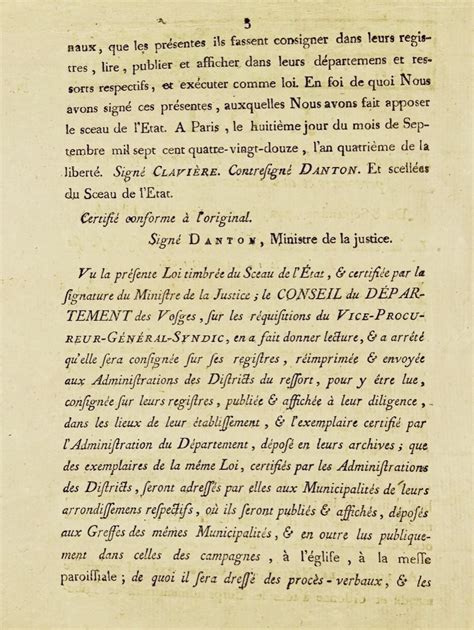 3
naux, que les présentes ils fassent consigner dans leurs regis-
tres , lire , publier et afficher dans leurs départemens et res-
sorts respectifs, et exécuter comme loi. En foi de quoi Nous
avons signé ces présentes , auxquelles Nous avons fait apposer
le sceau de l'Etat. A Paris , le huitième jour du mois de Sep-
tembre mil sept cent quatre-vingt-douze , l'an quatrième de la
liberté. Signé CLAVIÈRE. Contresigné DANTON. Et scellées
du Sceau de l'Etat.
Certifié conforme à l'original.
Signé DANTON, Ministre de la justice.
Vu la préſente Loi timbrée du Sceau de l'État, & certifiée par la
ſignature du Miniſtre de la Juſtice ; le CONSEIL du DÉPAR-
TEMENT des Voſges , ſur les réquiſitions du VICE-PROCU-
REUR-GÉNÉRAL-SYNDIC, en a fait donner lecture, & a arrêté
qu'elle ſera conſignée ſur ſes regiſtres , réimprimée & envoyée
aux Adminiſtrations des Diſtricts du reſſort , pour y être lue,
conſignée ſur leurs regiſtres, publiée & affichée à leur diligence ,
dans les lieux de leur établiſſement , & l'exemplaire certifié par
l'Adminiſtration du Département , dépoſé en leurs archives ; que
des exemplaires de la même Loi, certifiés par les Adminiſtrations
des Diſtricts , ſeront adreſſés par elles aux Municipalités de leurs
arrondiſſemens reſpectifs, où ils ſeront publiés & affichés, dépoſés
aux Greffes des mêmes Municipalités , & en outre lus publique-
ment dans celles des campagnes , à l'égliſe , à la meſſe
paroiſſiale ; de quoi il ſera dreſſé des procès-verbaux, & les